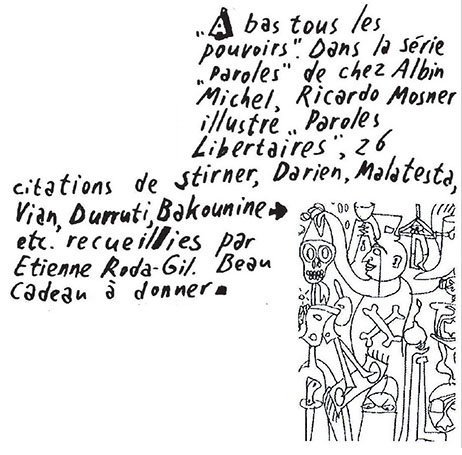 „A bas tous les
pouvoirs". Dans la série
„paroles" de chez Albin
Michel, Ricardo Mosner
illustre „Paroles
Libertaires", 26
citations de Stirner, Darien, Malatesta,
Vian, Durruti, Bakounine →
etc. recueillies par
Etienne Roda-Gil. Beau
cadeau à donner.